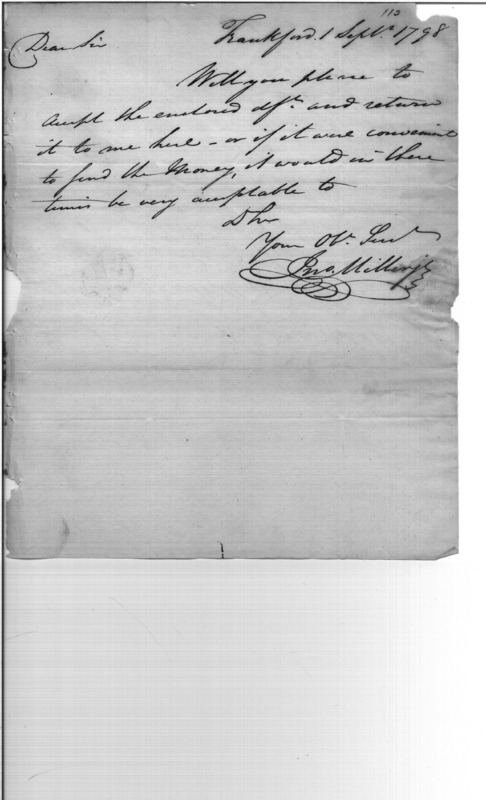 113
Frankford. 1 Sept. 1798
Dear Sir
Will you please to
accept the enclosed dft. and return
it to me here - or if it were convenient
to send the Money, it would in these
times be very acceptable to
D Sir
Your Obt. Servt.
Jno. Miller jr